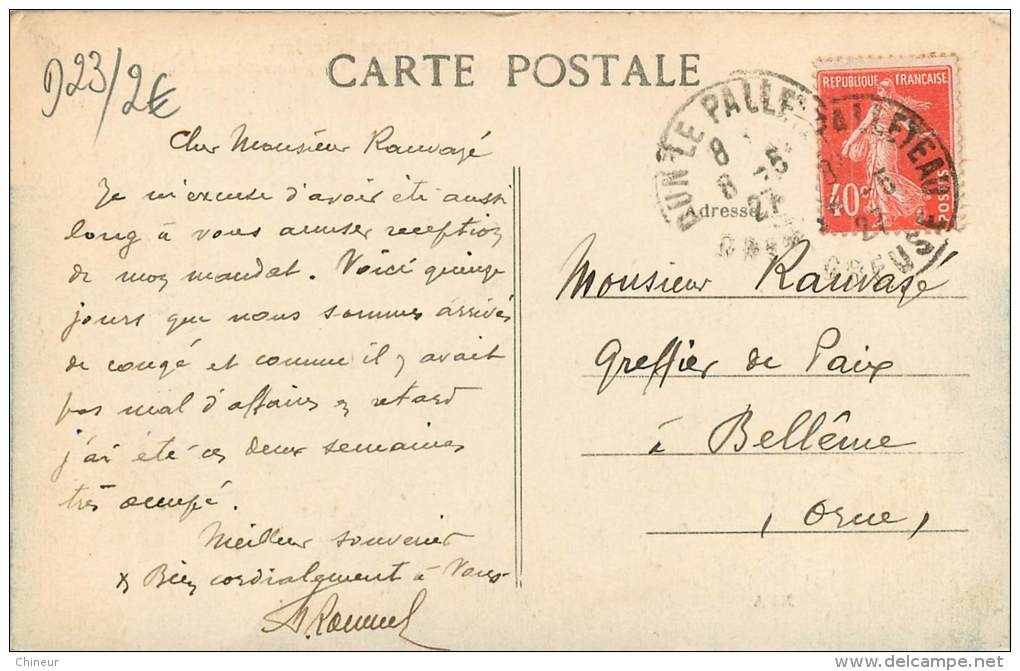 D23/2€
CARTE POSTALE
REPUBLIQUE FRANÇAISE
40c
POSTES
DUN-LE-PALLETEAU
CREUSE
8
8
27
Adresse
Cher Monsieur Rauvagé
Je m'excuse d'avoir été aussi
long à vous accuser reception
de mon mandat. Voici quinze
jours que nous sommes arrivés
de congé et comme il y avait
pas mal d'affaires en retard
j'ai été ces deux semaines
très occupé.
Meilleur souvenir
& Bien cordialement à Vous
Monsieur Rauvagé
Greffier de Paix
à Bellême
(Orne)
Chineur
www.delcampe.net